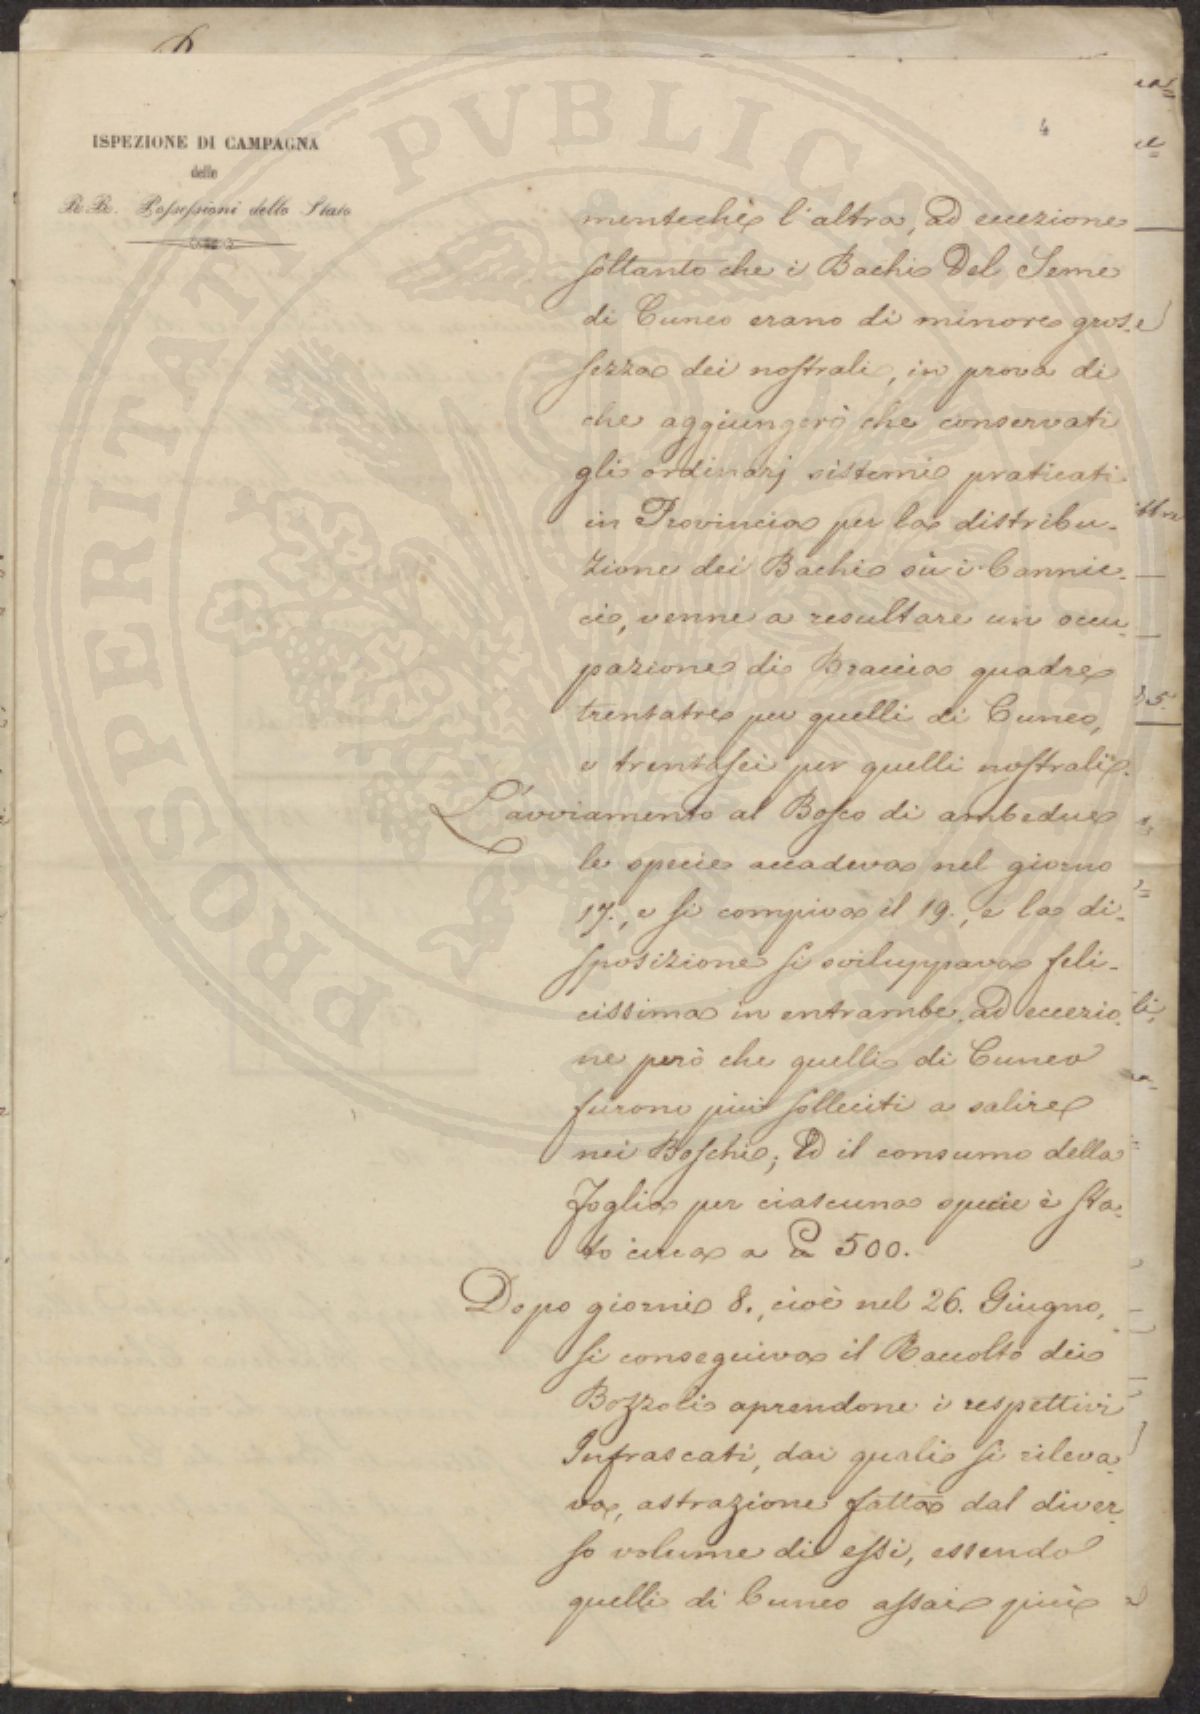 ISPEZIONE DI CAMPAGNA
delle
RR. Possessioni dello Stato
4
mentechè l'altra, ad eccezione
soltanto che i Bachi del Seme
di Cuneo erano di minore gros-
sezza dei nostrali, in prova di
che aggiungerò che conservati
gli ordinarj sistemi praticati
in Provincia per la distribu-
zione dei Bachi sù i Cannic-
ci, venne a resultare un occu-
pazione di Braccia quadre
trentatre per quelli di Cuneo,
e trentasei per quelli nostrali.
L'avviamento al Bosco di ambedue
le specie accadeva nel giorno
17., e si compiva il 19., e la di-
sposizione si sviluppava feli-
cissima in entrambe, ad eccezio-
ne però che quelli di Cuneo
furono più solleciti a salire
nei Boschi; Ed il consumo della
Foglia per ciascuna specie è sta-
to circa a 500.
Dopo giorni 8., cioè nel 26. Giugno,
si conseguiva il Raccolto dei
Bozzoli aprendone i respettivi
Infrascati, dai quali si rileva-
va, astrazione fatta dal diver-
so volume di essi, essendo
quelli di Cuneo assai più
PROSPERITATI PVBLICAE